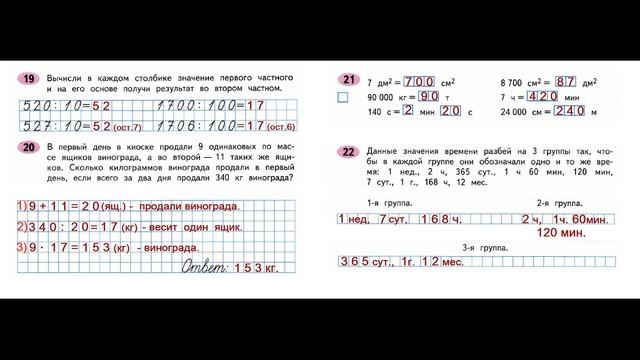 19 Вычисли в каждом столбике значение первого частного
и на его основе получи результат во втором частном.
520:10=52 1700:100=17
527:10=52(ост.7) 1706:100=17(ост.6)
20 В первый день в киоске продали 9 одинаковых по мас-
се ящиков винограда, а во второй — 11 таких же ящи-
ков. Сколько килограммов винограда продали в первый
день, если всего за два дня продали 340 кг винограда?
1) 9+11=20(ящ.)- продали винограда.
2) 340:20=17(кг) - весит один ящик.
3) 9·17=153(кг) -винограда.
Ответ: 153кг.
21 7 дм² = 700 см² 8 700 см² = 87 дм²
90 000 кг = 90 т 7 ч = 420 мин
140 с = 2 мин 20 с 24 000 см = 240 м
22 Данные значения времени разбей на 3 группы так, что-
бы в каждой группе они обозначали одно и то же вре-
мя: 1 нед., 2 ч, 365 сут., 1 ч 60 мин, 120 мин,
7 сут., 1 г., 168 ч, 12 мес.
1-я группа. 2-я группа.
1нед, 7сут, 168ч. 2ч, 1ч. 60мин.
120 мин.
3-я группа.
365сут., 1г. 12мес.